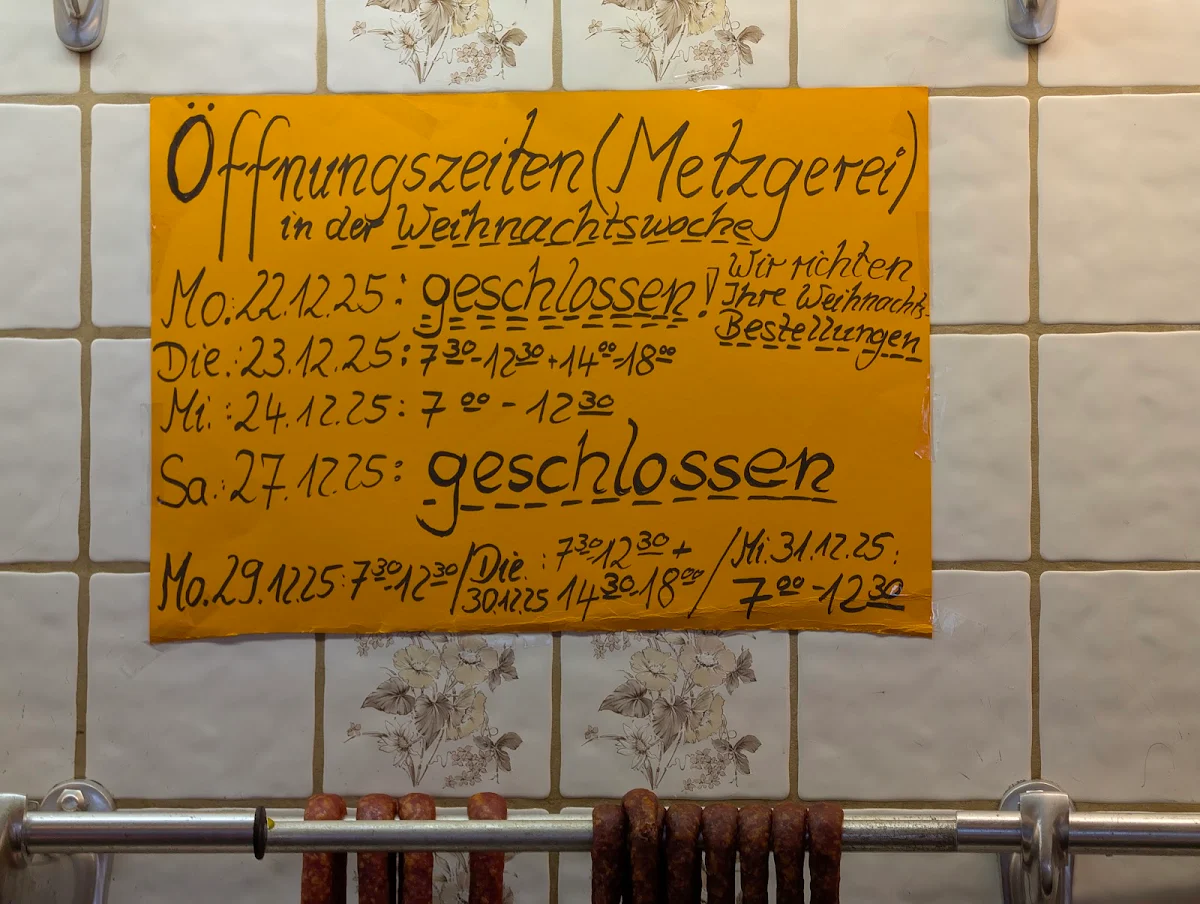 Öffnungszeiten (Metzgerei)
in der Weihnachtswoche
Mo.: 22.12.25: geschlossen!
Wir richten
Ihre Weihnachts-
Bestellungen
Die.: 23.12.25: 7³⁰-12³⁰ + 14⁰⁰-18⁰⁰
Mi.: 24.12.25: 7⁰⁰ - 12³⁰
Sa.: 27.12.25: geschlossen
Mo. 29.12.25: 7³⁰-12³⁰ / Die.: 30.12.25 7³⁰-12³⁰ + 14³⁰-18⁰⁰ / Mi. 31.12.25: 7⁰⁰-12³⁰